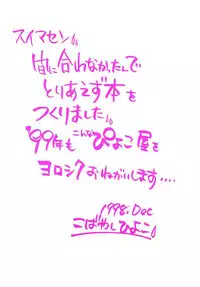 スイマセン。
間に合わなかったんで
とりあえず本を
つくりました。
'99年もこんなぴよこ屋を
ヨロシクおねがいします‥‥
1998. Dec
こばやしひよこ。